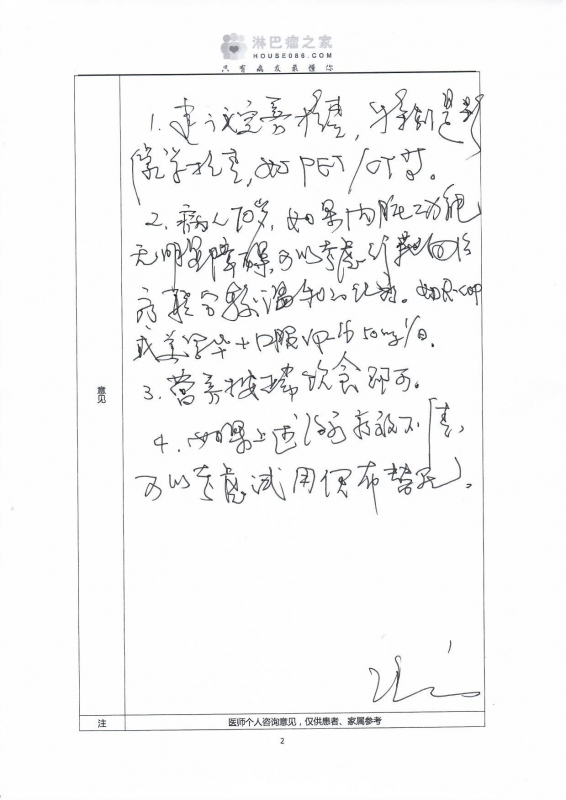 淋巴瘤之家
HOUSE086.COM
只有病友最懂你
意见
1. 建议完善检查,特别是影
像学检查,如PET/CT等。
2. 病人70岁,如果内脏功能
无明显障碍,可以考虑行靶向治
疗联合较温和的化疗。如R-COP
或美罗华+口服VP-16 50mg/日。
3. 营养按正常饮食即可。
4. 如果上述治疗疗效不佳,
可以考虑试用伊布替尼。
注
医师个人咨询意见,仅供患者、家属参考
2